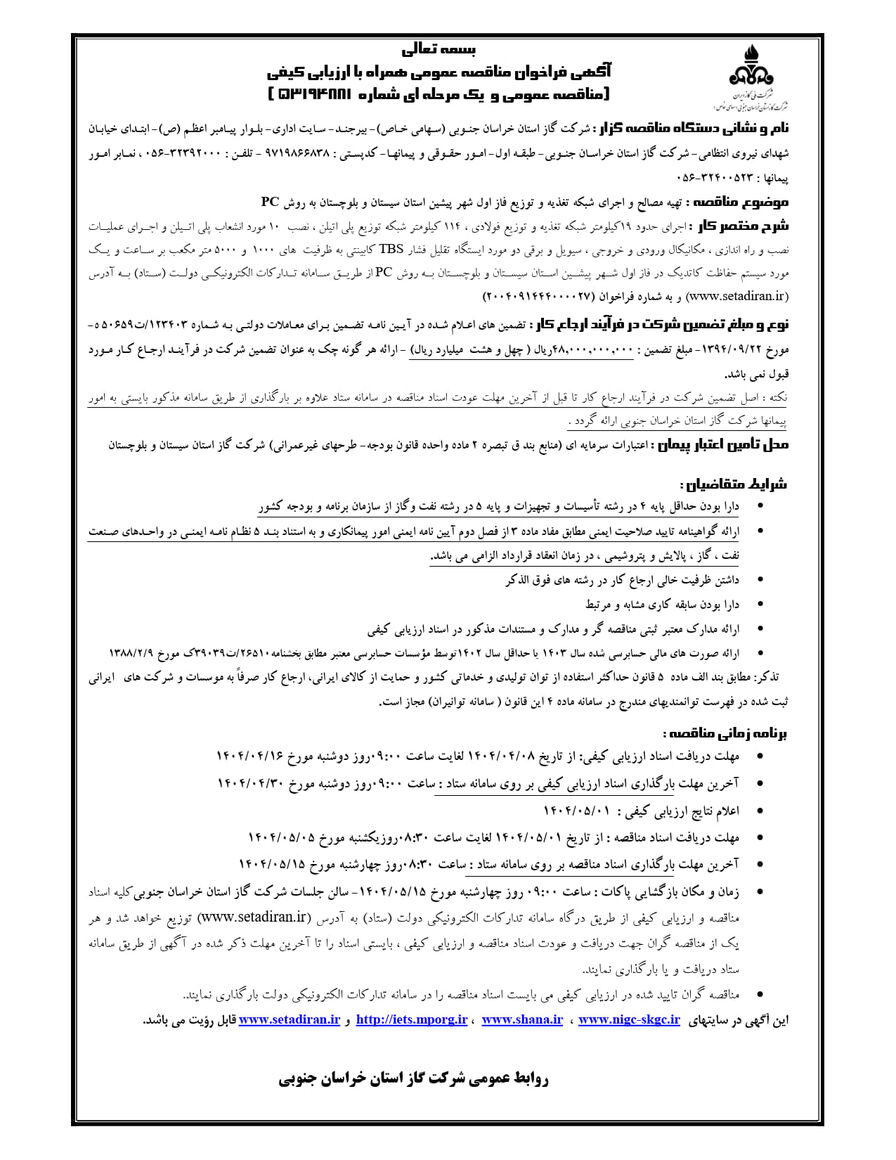 بسمه تعالی
آگهی فراخوان مناقصه عمومی همراه با ارزیابی کیفی
(مناقصه عمومی و یک مرحله ای شماره ۵۳۱۹۴۸۸۱ )
شرکت ملی گاز ایران
شرکت گاز استان خراسان جنوبی (سهامی خاص)
نام و نشانی دستگاه مناقصه گزار : شرکت گاز استان خراسان جنوبی (سهامی خاص)- بیرجند- سایت اداری- بلوار پیامبر اعظم (ص)- ابتدای خیابان
شهدای نیروی انتظامی- شرکت گاز استان خراسان جنوبی- طبقه اول- امور حقوقی و پیمانها- کدپستی : ۹۷۱۹۸۶۶۸۳۸ - تلفن : ۳۲۳۹۲۰۰۰-۰۵۶ ، نمابر امور
پیمانها : ۳۲۴۰۰۵۲۳-۰۵۶
موضوع مناقصه : تهیه مصالح و اجرای شبکه تغذیه و توزیع فاز اول شهر پیشین استان سیستان و بلوچستان به روش PC
شرح مختصر کار : اجرای حدود ۱۹کیلومتر شبکه تغذیه و توزیع فولادی ، ۱۱۴ کیلومتر شبکه توزیع پلی اتیلن ، نصب ۱۰ مورد انشعاب پلی اتیلن و اجرای عملیات
نصب و راه اندازی ، مکانیکال ورودی و خروجی ، سیویل و برقی دو مورد ایستگاه تقلیل فشار TBS کابینتی به ظرفیت های ۱۰۰۰ و ۵۰۰۰ متر مکعب بر ساعت و یک
مورد سیستم حفاظت کاتدیک در فاز اول شهر پیشین استان سیستان و بلوچستان به روش PC از طریق سامانه تدارکات الکترونیکی دولت (ستاد) به آدرس
(www.setadiran.ir) و به شماره فراخوان (۲۰۰۴۰۹۱۴۴۴۰۰۰۰۲۷)
نوع و مبلغ تضمین شرکت در فرآیند ارجاع کار : تضمین های اعلام شده در آیین نامه تضمین برای معاملات دولتی به شماره ۱۲۳۴۰۳/ت۵۰۶۵۹ ه-
مورخ ۱۳۹۴/۰۹/۲۲- مبلغ تضمین : ۴۸,۰۰۰,۰۰۰,۰۰۰ریال ( چهل و هشت میلیارد ریال) - ارائه هر گونه چک به عنوان تضمین شرکت در فرآیند ارجاع کار مورد
قبول نمی باشد.
نکته : اصل تضمین شرکت در فرآیند ارجاع کار تا قبل از آخرین مهلت عودت اسناد مناقصه در سامانه ستاد علاوه بر بارگذاری از طریق سامانه مذکور بایستی به امور
پیمانها شرکت گاز استان خراسان جنوبی ارائه گردد .
محل تأمین اعتبار پیمان : اعتبارات سرمایه ای (منابع بند ق تبصره ۲ ماده واحده قانون بودجه- طرحهای غیرعمرانی) شرکت گاز استان سیستان و بلوچستان
شرایط متقاضیان :
• دارا بودن حداقل پایه ۴ در رشته تأسیسات و تجهیزات و پایه ۵ در رشته نفت وگاز از سازمان برنامه و بودجه کشور
• ارائه گواهینامه تایید صلاحیت ایمنی مطابق مفاد ماده ۳ از فصل دوم آیین نامه ایمنی امور پیمانکاری و به استناد بند ۵ نظام نامه ایمنی در واحدهای صنعت
نفت ، گاز ، پالایش و پتروشیمی ، در زمان انعقاد قرارداد الزامی می باشد.
• داشتن ظرفیت خالی ارجاع کار در رشته های فوق الذکر
• دارا بودن سابقه کاری مشابه و مرتبط
• ارائه مدارک معتبر ثبتی مناقصه گر و مدارک و مستندات مذکور در اسناد ارزیابی کیفی
• ارائه صورت های مالی حسابرسی شده سال ۱۴۰۳ یا حداقل سال ۱۴۰۲توسط مؤسسات حسابرسی معتبر مطابق بخشنامه۲۶۵۱۰/ت۳۹۰۳۹ک مورخ ۱۳۸۸/۲/۹
تذکر: مطابق بند الف ماده ۵ قانون حداکثر استفاده از توان تولیدی و خدماتی کشور و حمایت از کالای ایرانی، ارجاع کار صرفاً به موسسات و شرکت های ایرانی
ثبت شده در فهرست توانمندیهای مندرج در سامانه ماده ۴ این قانون ( سامانه توانیران) مجاز است.
برنامه زمانی مناقصه :
• مهلت دریافت اسناد ارزیابی کیفی: از تاریخ ۱۴۰۴/۰۴/۰۸ لغایت ساعت ۰۹:۰۰روز دوشنبه مورخ ۱۴۰۴/۰۴/۱۶
• آخرین مهلت بارگذاری اسناد ارزیابی کیفی بر روی سامانه ستاد : ساعت ۰۹:۰۰روز دوشنبه مورخ ۱۴۰۴/۰۴/۳۰
• اعلام نتایج ارزیابی کیفی : ۱۴۰۴/۰۵/۰۱
• مهلت دریافت اسناد مناقصه : از تاریخ ۱۴۰۴/۰۵/۰۱ لغایت ساعت ۰۸:۳۰روزیکشنبه مورخ ۱۴۰۴/۰۵/۰۵
• آخرین مهلت بارگذاری اسناد مناقصه بر روی سامانه ستاد : ساعت ۰۸:۳۰روز چهارشنبه مورخ ۱۴۰۴/۰۵/۱۵
• زمان و مکان بازگشایی پاکات : ساعت ۰۹:۰۰ روز چهارشنبه مورخ ۱۴۰۴/۰۵/۱۵- سالن جلسات شرکت گاز استان خراسان جنوبی کلیه اسناد
مناقصه و ارزیابی کیفی از طریق درگاه سامانه تدارکات الکترونیکی دولت (ستاد) به آدرس (www.setadiran.ir) توزیع خواهد شد و هر
یک از مناقصه گران جهت دریافت و عودت اسناد مناقصه و ارزیابی کیفی ، بایستی اسناد را تا آخرین مهلت ذکر شده در آگهی از طریق سامانه
ستاد دریافت و یا بارگذاری نمایند..
• مناقصه گران تایید شده در ارزیابی کیفی می بایست اسناد مناقصه را در سامانه تدارکات الکترونیکی دولت بارگذاری نمایند.
این آگهی در سایتهای www.nigc-skgc.ir ، www.shana.ir ، http://iets.mporg.ir و www.setadiran.ir قابل رؤیت می باشد.
روابط عمومی شرکت گاز استان خراسان جنوبی